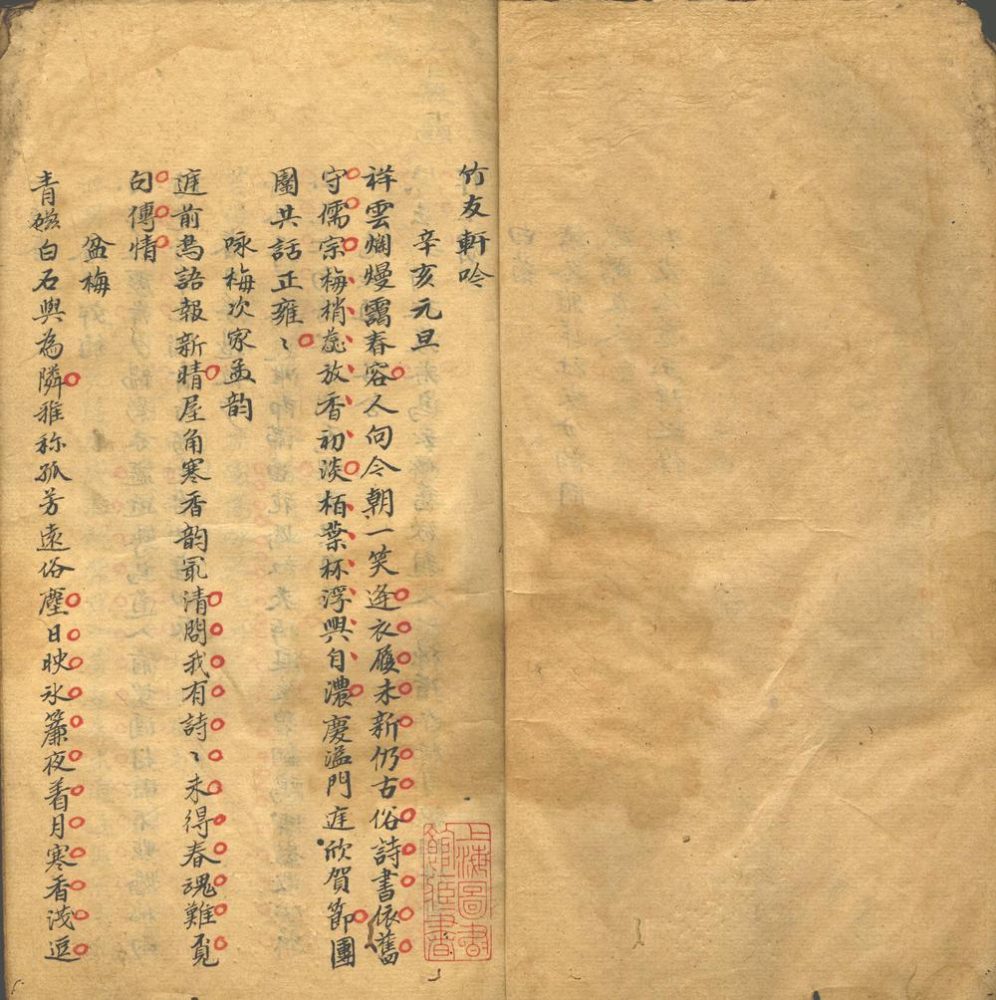 竹友軒吟
辛亥元旦
祥雲爛熳靄春容人向今朝一笑逢衣履未新仍古俗詩書依舊
守儒宗梅梢蕊放香初淡栢葉杯浮興自濃慶溢門庭欣賀節團
團共話正雍〻
咏梅次家孟韵
庭前鳥語報新晴屋角寒香韵氣清問我有詩〻未得春魂難覓
句傳情
盆梅
青磁白石與為隣雅称孤芳遠俗塵日映氷簾夜着月寒香淺逗
上海圖書館藏書